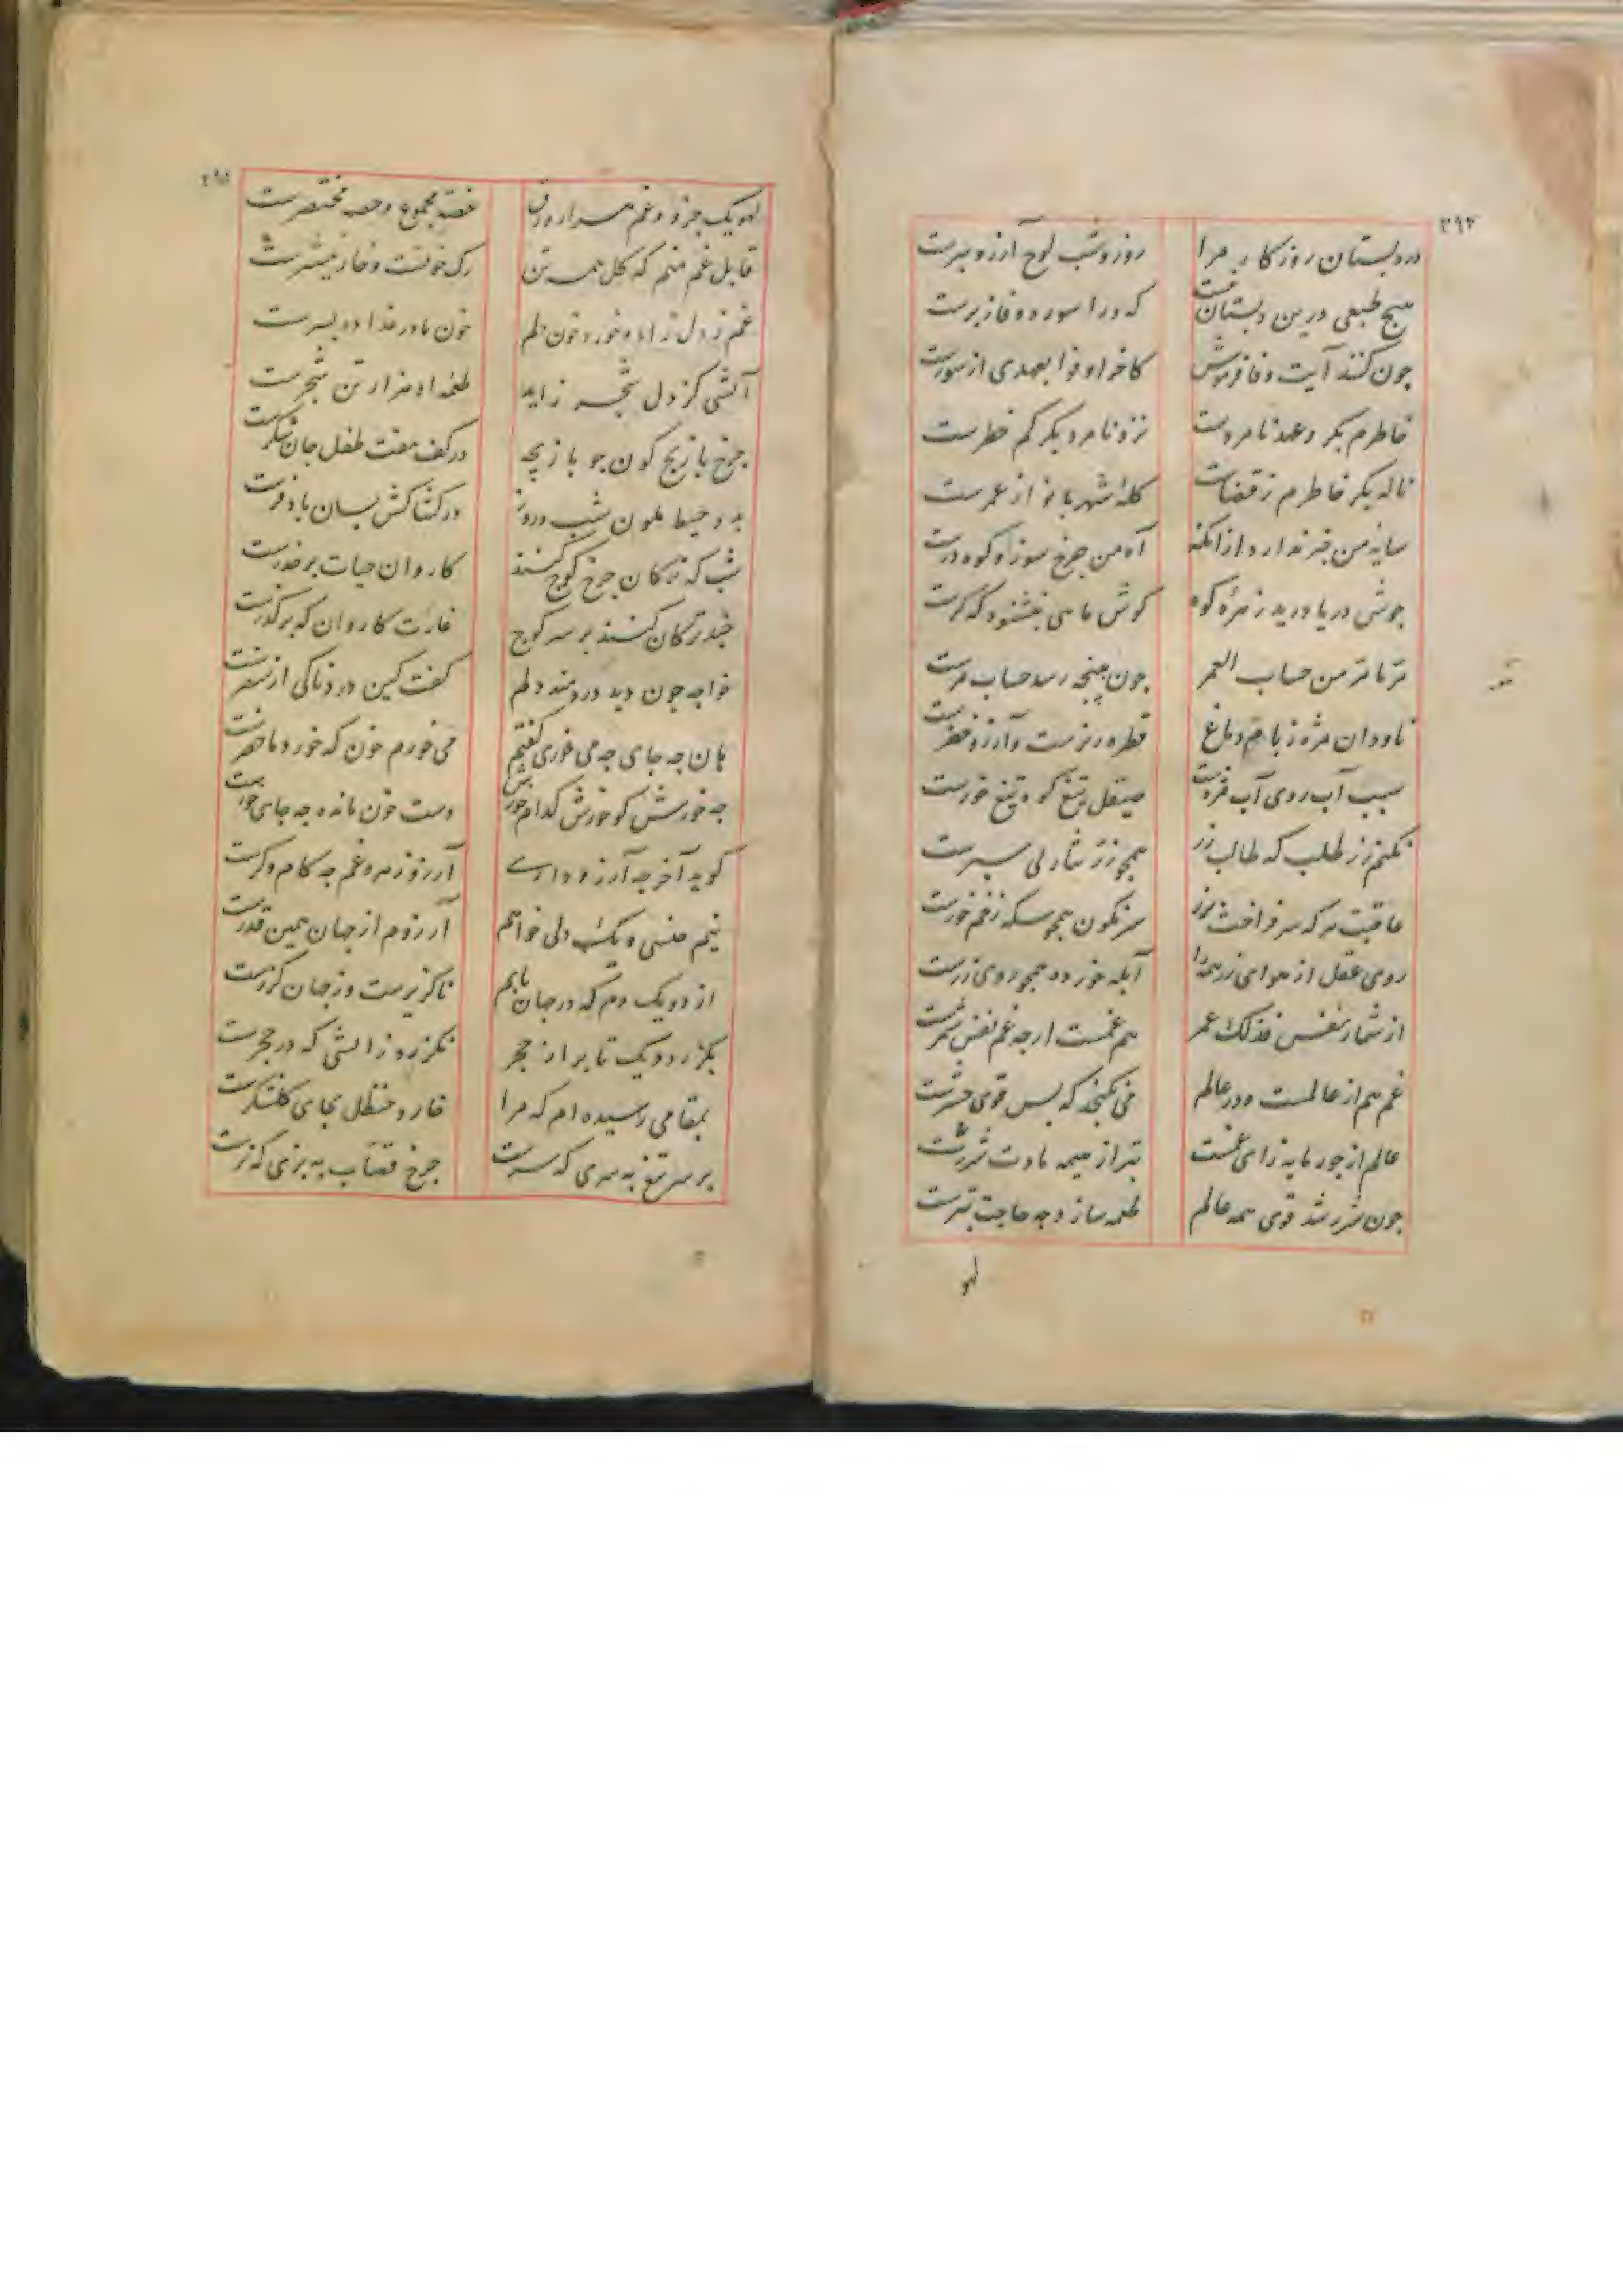 ۳۹۴
در دبستان روزگار مرا روز و شب لوح آرزو ببرست
هیچ طبعی درین دبستان نیست که ورا سوره وفا ز برست
چون کند آیت وفا فرموش کاخر اوفوا بعهدی از سورست
خاطرم بکر و عهد نامردست نزد نامرد بکر کم خطرست
ناله بکر خاطرم ز قضاست کله شهربانو از عمرست
سایه من خبر ندارد از آنکه آه من چرخ سوز و کوه درست
جوش دریا درید زهره کوه گوش ماهی بنشنود که کرست
مرا تا من حساب العمر چون به پنجه رسد حساب مرست
ناودان مژه ز بام دماغ قطره ریزست و آرزو خضرست
سبب آب روی آب مژه است صیقل تیغ کوه تیغ خورست
نکنم زر طلب که طالب زر همچو زر نثار پی سپرست
عاقبت هر که سر فراخت بزر سرنگون همچو سکه زخم خورست
روی عقل از هوای زر همه را آبله خورده همچو روی زرست
از شمار نفس فذلک عمر هم غمست ار چه غم نفس شمرست
غم هم از عالمست و در عالم می نگنجد که بس قوی حشرست
عالم از جور مایه زای غمست
چون شرر شد قوی همه عالم طعمه سازد چه حاجت تبرست
لهو
۳۹۵
لهو یک جزو و غم هزار ورق غصه مجموع و حصه مختصرست
قابل غم منم که گل همه تن رگ خونست و خار نیشترست
غم ز دل زاد و خورد خون دلم خون مادر غذا ده پسرست
آتشی کز دل شجر زاید طعمه او هزار تن شجرست
چرخ بازیچه گون چو بازیچه در کف هفت طفل جان شکرست
بدو خیط ملون شب و روز در کشاکش بسان بادفرست
شب که ترکان چرخ کوچ کنند کاروان حیات بر حذرست
خود ترکان کنند بر سر کوچ غارت کاروان که بر گذرست
خواجه چون دید دردمند دلم گفت کین دردناکی از سفرست
هان چه جای چه می خوری گفتم می خورم خون که خورد ما حضرست
چه خورش کو خورش کدام خورش دست خون مانده چه جای خورست
گوید آخر چه آرزو داری آرزو زهر و غم چه کام و کرست
نیم جنسی و یک دلی خواهم آرزوم از جهان همین قدرست
از دو یک دم که در جهان یابم ناگزیرست وز جهان گزرست
بگزرد دو یک تابر از حجر نگزرد ز آتشی که در حجرست
بمقامی رسیده ام که مرا خار و حنظل بجای گلشکرست
بر سر تیغ به سری که سرست چرخ قصاب به بزی که نرست